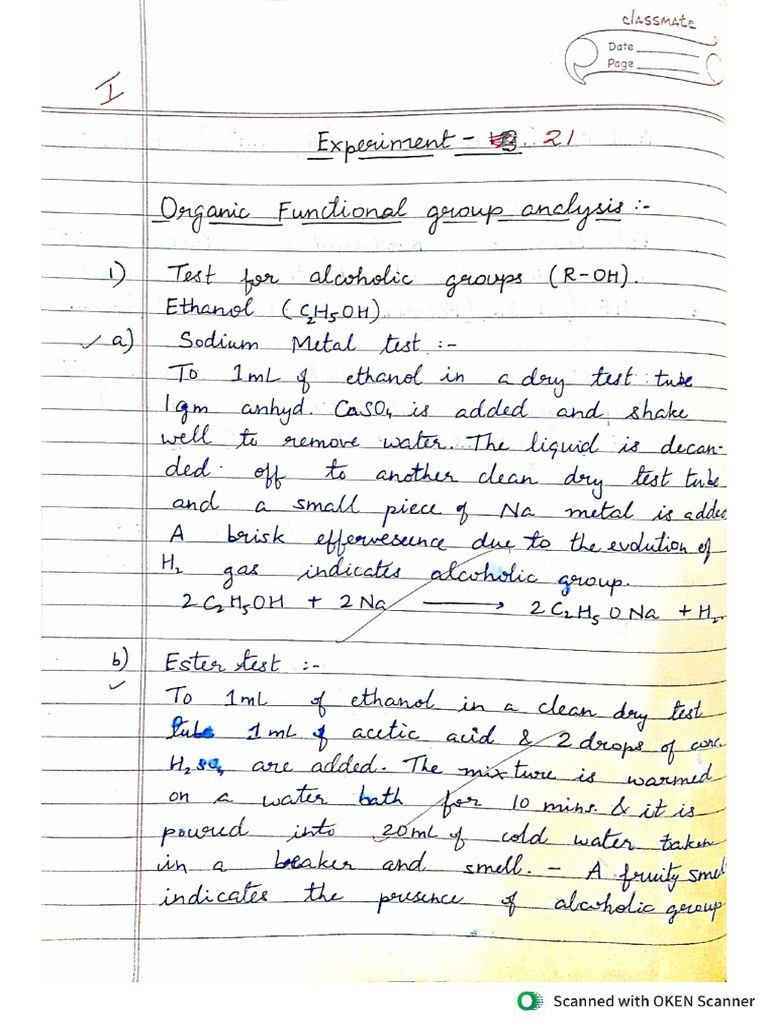 classmate
Date
Page
I
Experiment - 21
Organic Functional group analysis :-
1) Test for alcoholic groups (R-OH).
Ethanol (C2H5OH)
a) Sodium Metal test :-
To 1mL of ethanol in a dry test tube
1gm anhyd. CaSO4 is added and shake
well to remove water. The liquid is decan-
ded off to another clean dry test tube
and a small piece of Na metal is added
A brisk effervesence due to the evolution of
H2 gas indicates alcoholic group.
2C2H5OH + 2Na ⟶ 2C2H5ONa + H2
b) Ester test :-
To 1mL of ethanol in a clean dry test
tube 1mL of acetic acid & 2 drops of conc
H2SO4 are added. The mixture is warmed
on a water bath for 10 mins. & it is
poured into 20mL of cold water taken
in a beaker and smell. - A fruity smel
indicates the presence of alcoholic group
Scanned with OKEN Scanner